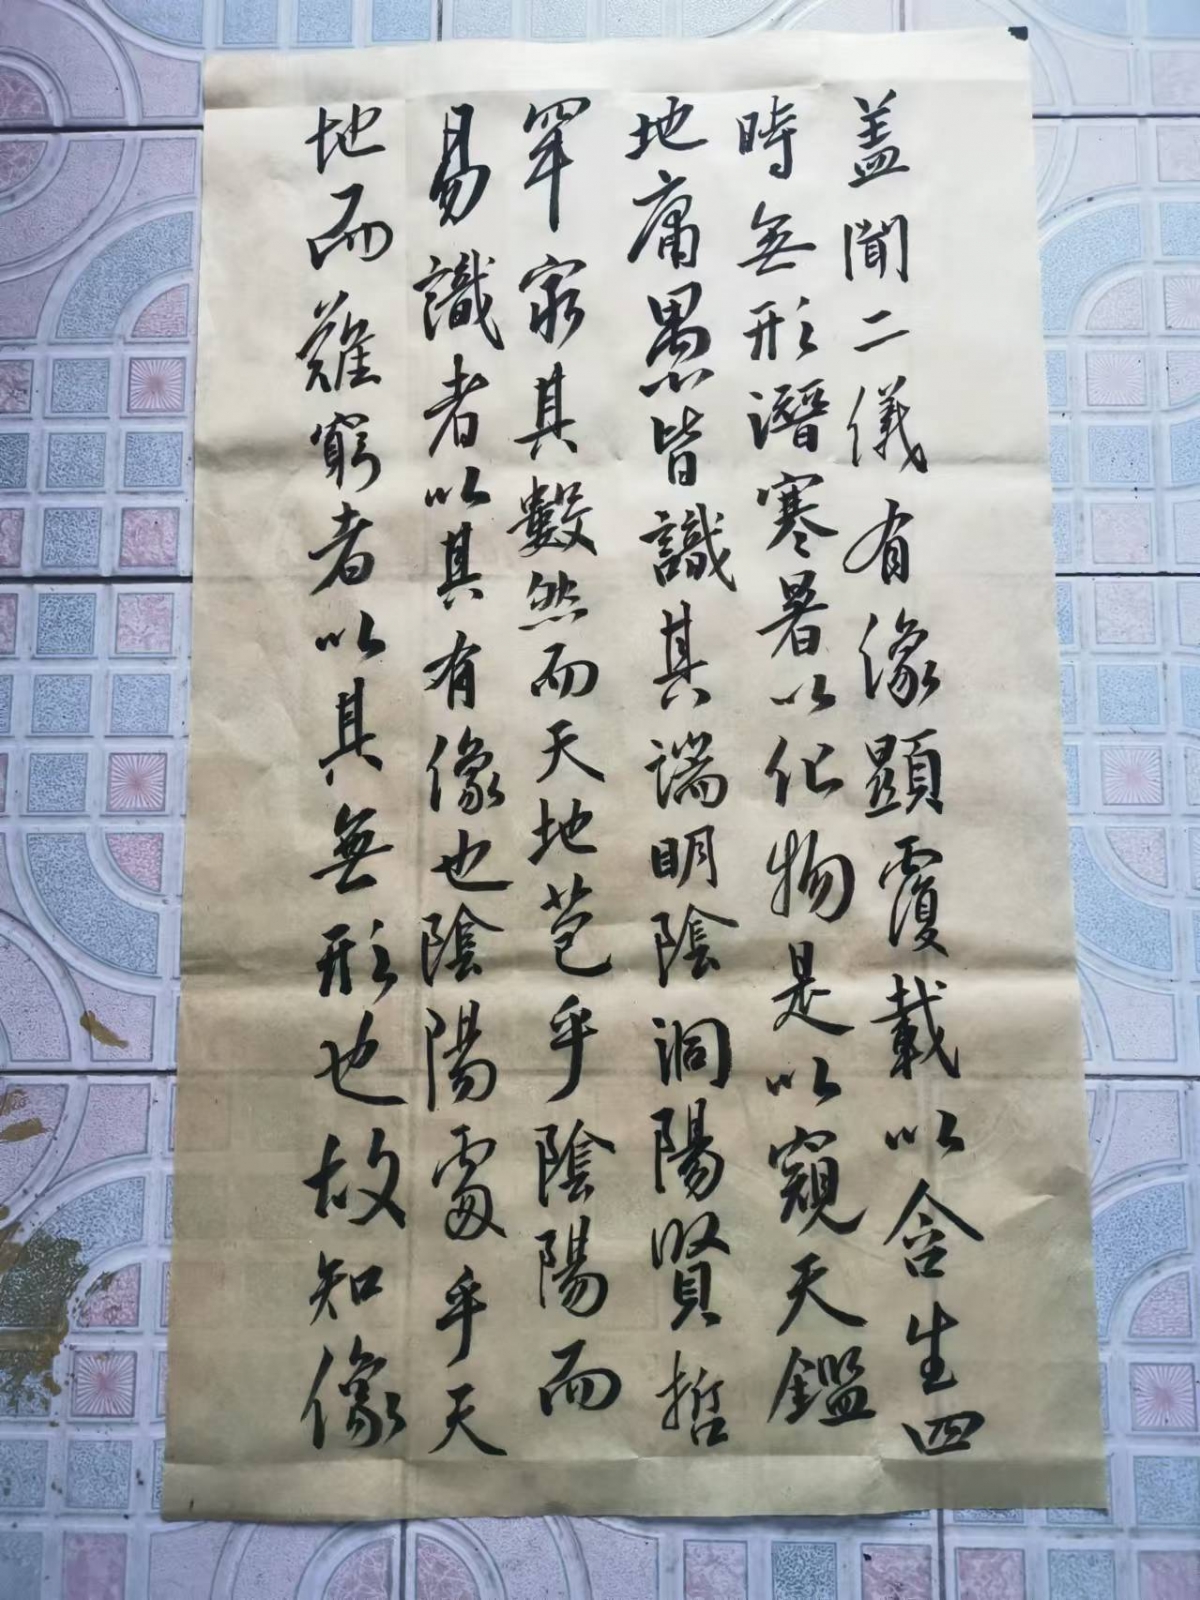 盖聞二儀有像顯覆載以含生四
時無形潛寒暑以化物是以窺天鑑
地庸愚皆識其端明陰洞陽賢哲
罕窮其數然而天地苞乎陰陽而
易識者以其有像也陰陽處乎天
地而難窮者以其無形也故知像